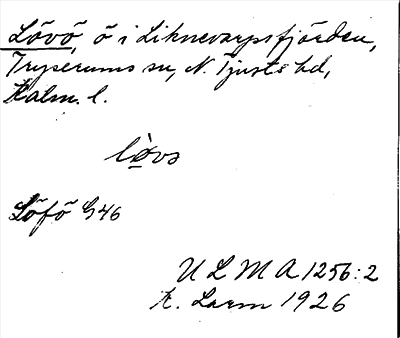 Lövö, ö i Liknevarpsfjärden,
Tryserums sn, N. Tjusts hd,
Kalm. l.
lòvs
Löfö G46
U L M A 1256:2
K. Larm 1926